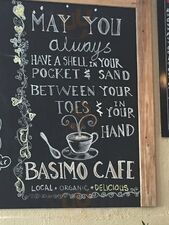 MAY YOU
always
HAVE A SHELL IN YOUR
POCKET & SAND
BETWEEN YOUR
TOES & IN YOUR
HAND
BASIMO CAFE
LOCAL • ORGANIC • DELICIOUS